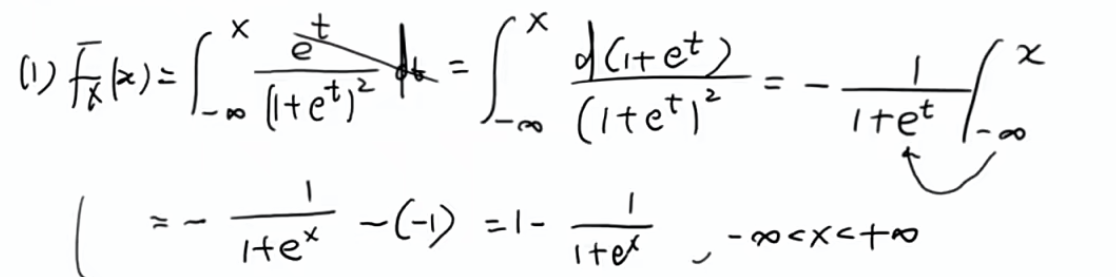 (1) F_X(x) = ∫_{-∞}^{x} e^t/(1+e^t)^2 dt = ∫_{-∞}^{x} d(1+e^t)/(1+e^t)^2 = - 1/(1+e^t) |_{-∞}^{x}
= - 1/(1+e^x) - (-1) = 1 - 1/(1+e^x) , -∞<x<+∞